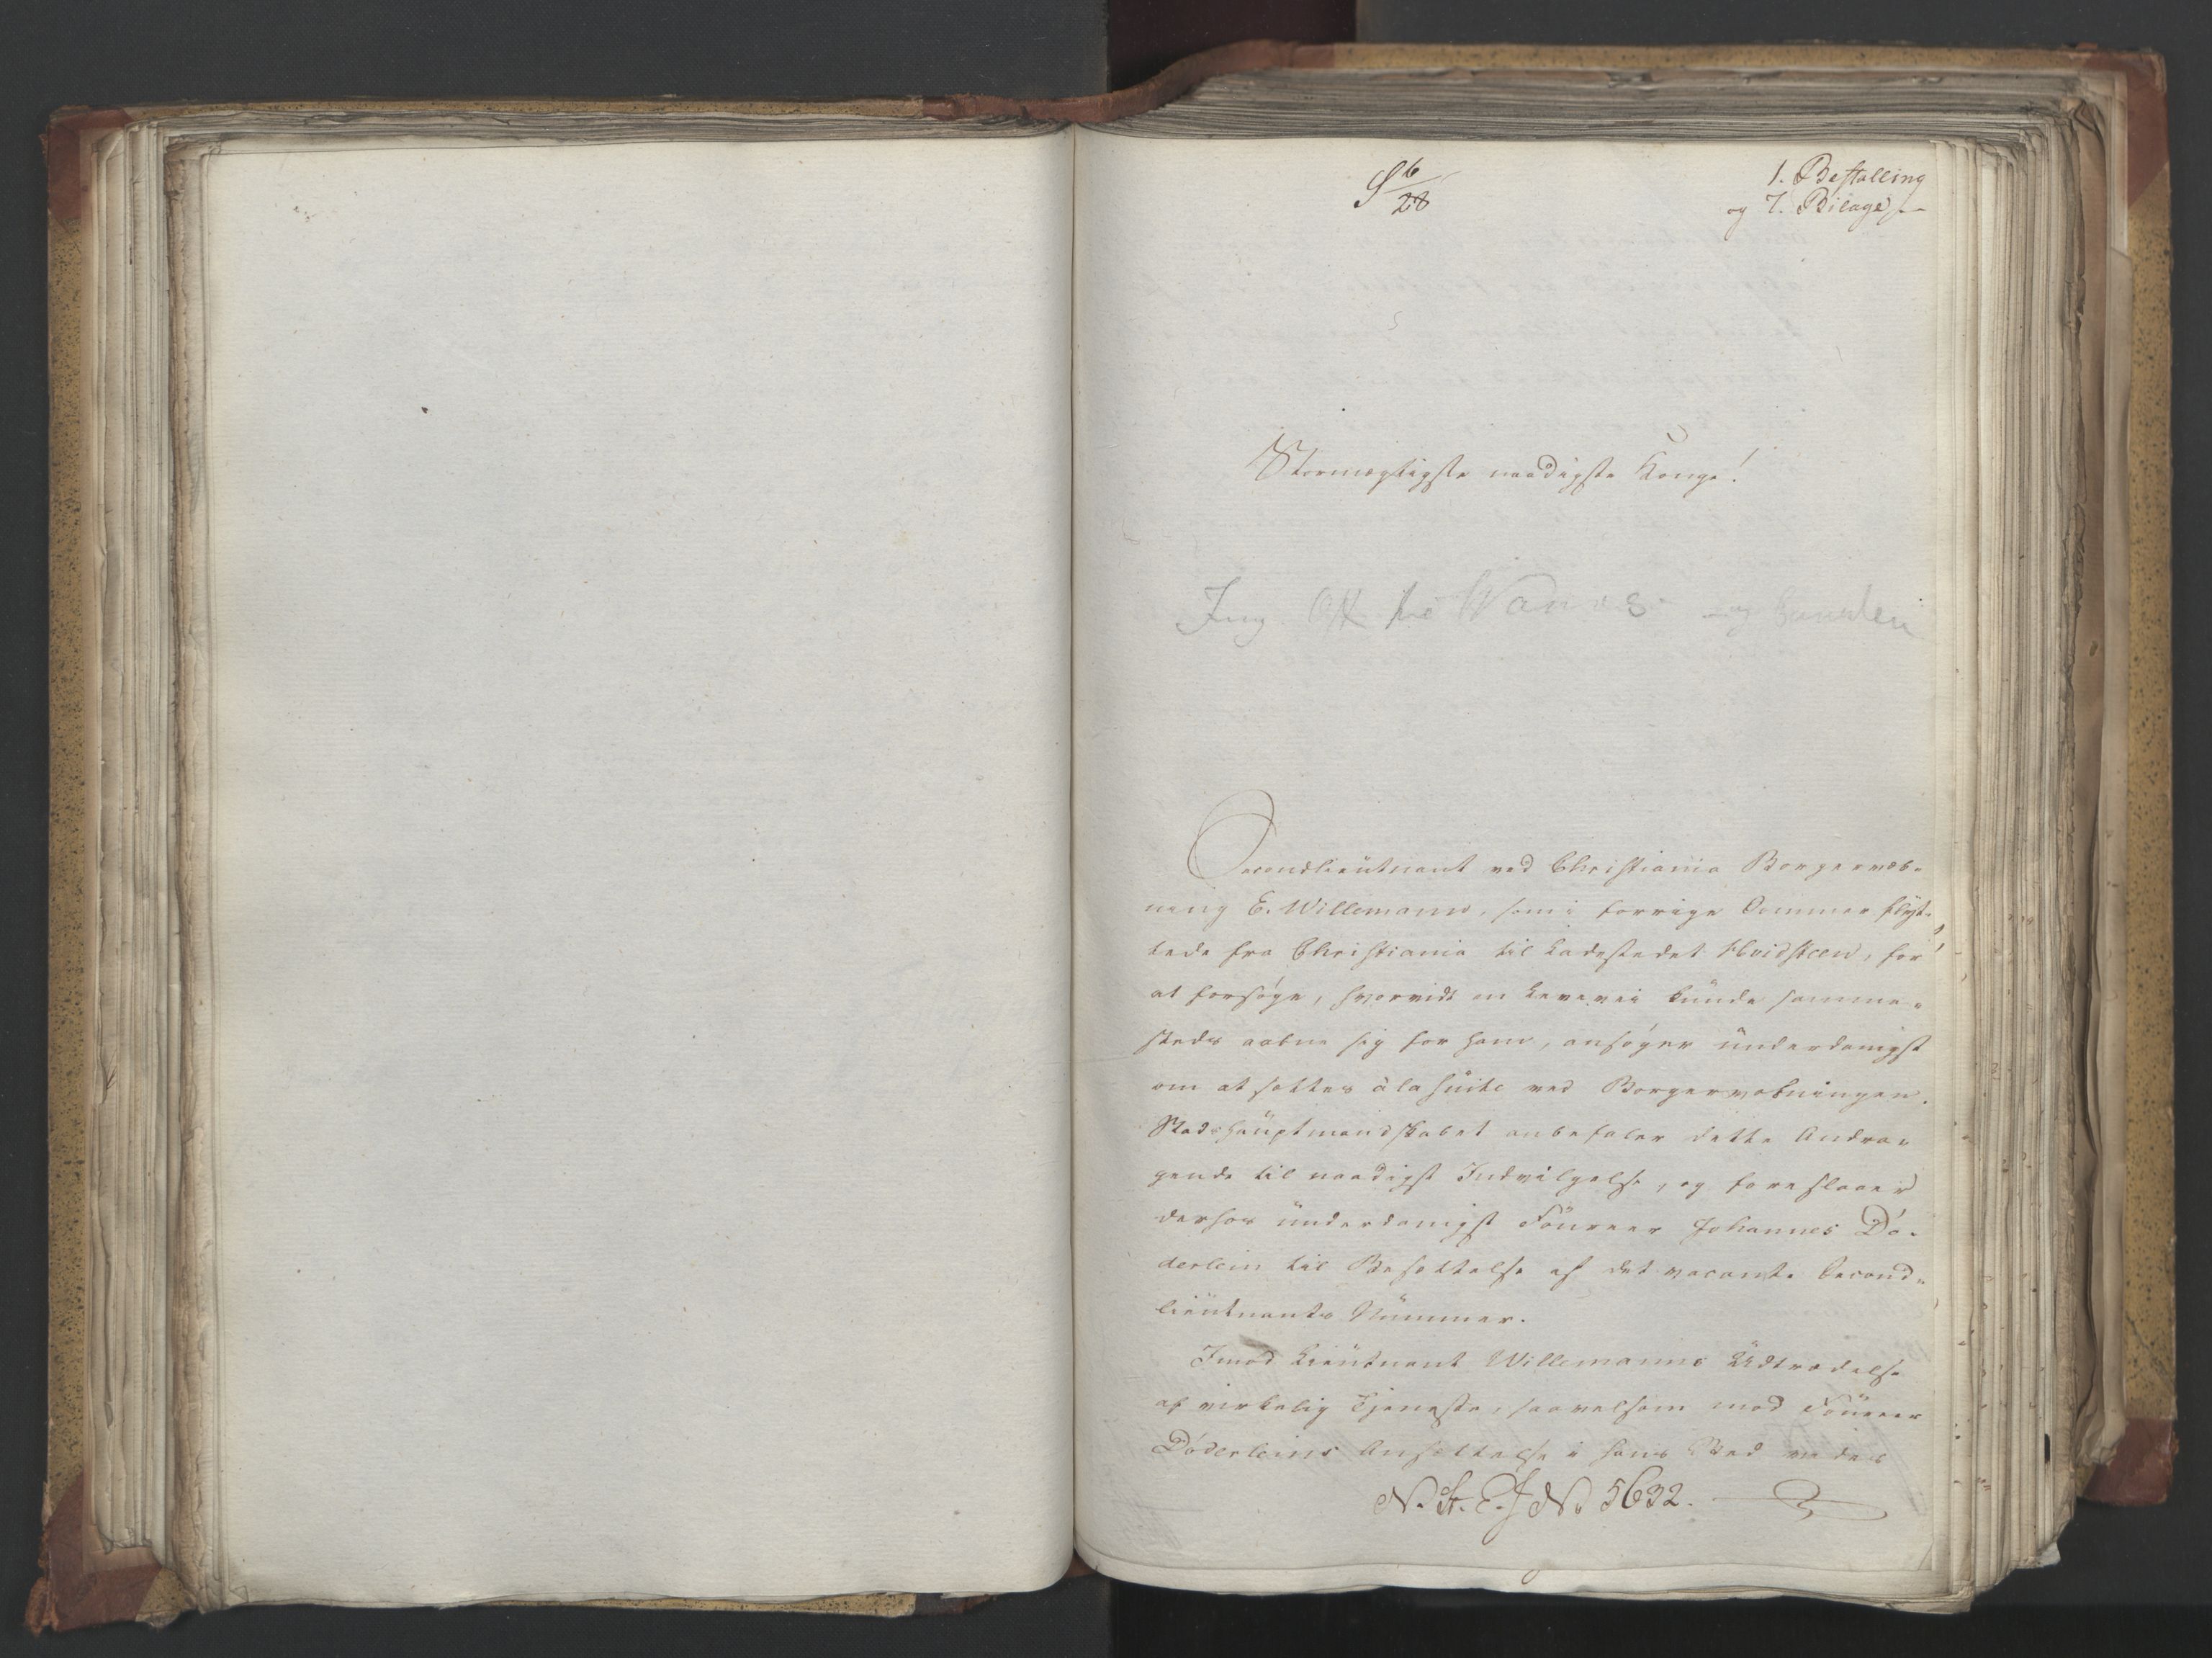 S 6/28
1. Bestalling
og 7. Bilage
Stormægtigste naadigste Konge!
Ing. Off.
og
Secondlieutnant ved Christiania Borgervæb-
ning E. Willemann, som i forrige Sommer flyt-
tede fra Christiania til Ladestedet Hvidsteen, for
at forsøge, hvorvidt en Levevei kunde samme-
steds aabne sig for ham, ansøger underdanigst
om at sættes à la suite ved Borgervæbningen.
Stadshauptmandskabet anbefaler dette Andra-
gende til naadigst Indvilgelse, og foreslaaer
derhos underdanigst Foureer Johannes Dö-
derlein til Besættelse af det vacante Second-
lieutnants Nummer.
Imod Lieutnant Willemanns Udtrædelse
af virkelig Tjeneste, saavelsom mod Foureer
Döderleins Ansættelse i hans Sted vides
N. St. E. J. No 5632.